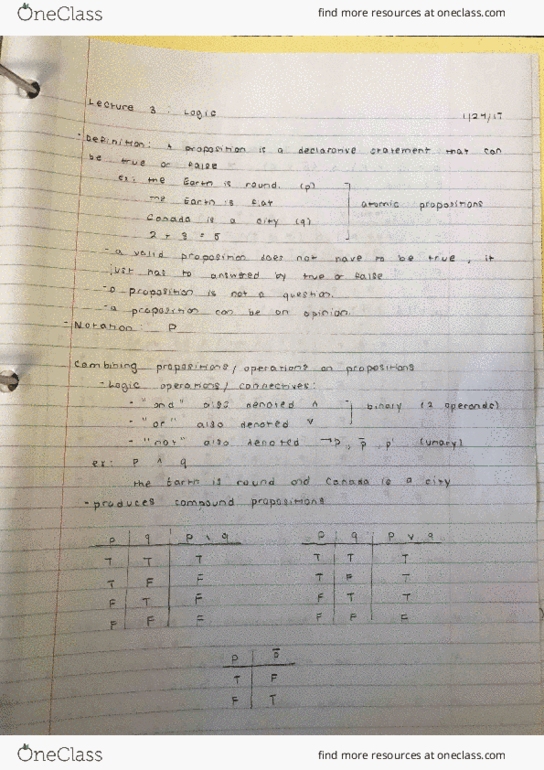 OneClass find more resources at oneclass.com
Lecture 3 : Logic 1/24/17
- Definition: A proposition is a declarative statement that can
be true or false
ex: the Earth is round. (p)
the Earth is flat atomic propositions
Canada is a city (q)
2 + 3 = 5
- a valid proposition does not have to be true, it
just has to answered by true or false
- a proposition is not a question.
- a proposition can be an opinion.
- Notation: P
Combining propositions/operations on propositions
- Logic operations/connectives:
- "and" also denoted ∧ binary (2 operands)
- "or" also denoted ∨
- "not" also denoted ¬p, p̅, p' (unary)
ex: p ∧ q
the Earth is round and Canada is a city
- produces compound propositions
p q p ∧ q p q p ∨ q
T T T T T T
T F F T F T
F T F F T T
F F F F F F
p p̅
T F
F T
OneClass find more resources at oneclass.com